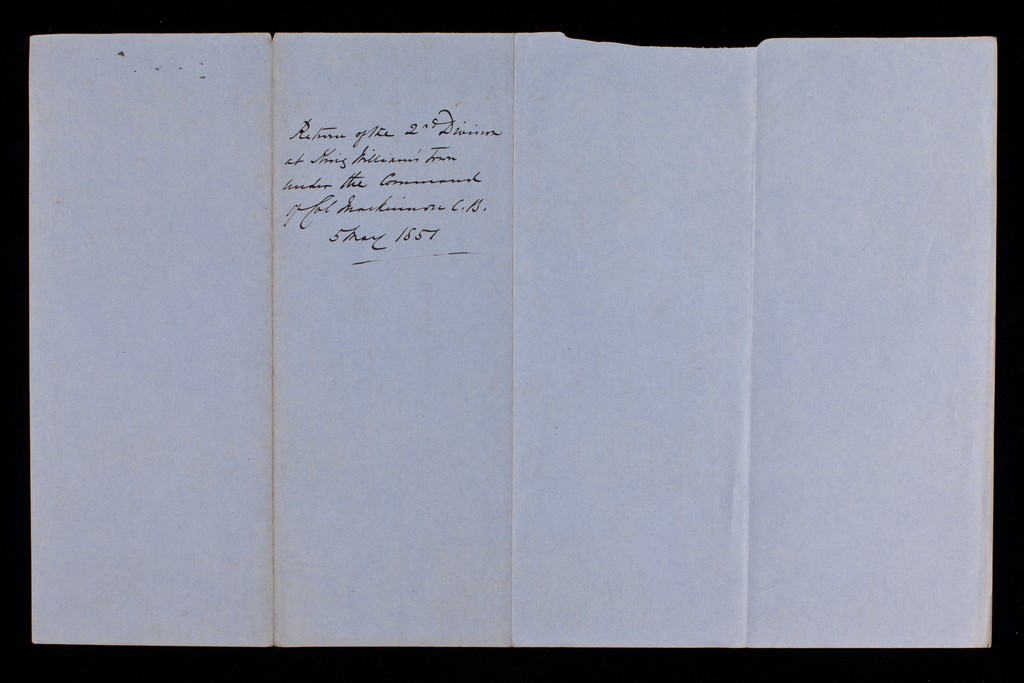 Return of the 2nd Division
at King William's Town
under the Command
of Col Mackinnon C.B.
5 May 1851